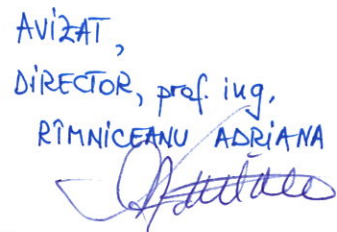 AVIZAT,
DIRECTOR, prof. ing.
RÎMNICEANU ADRIANA